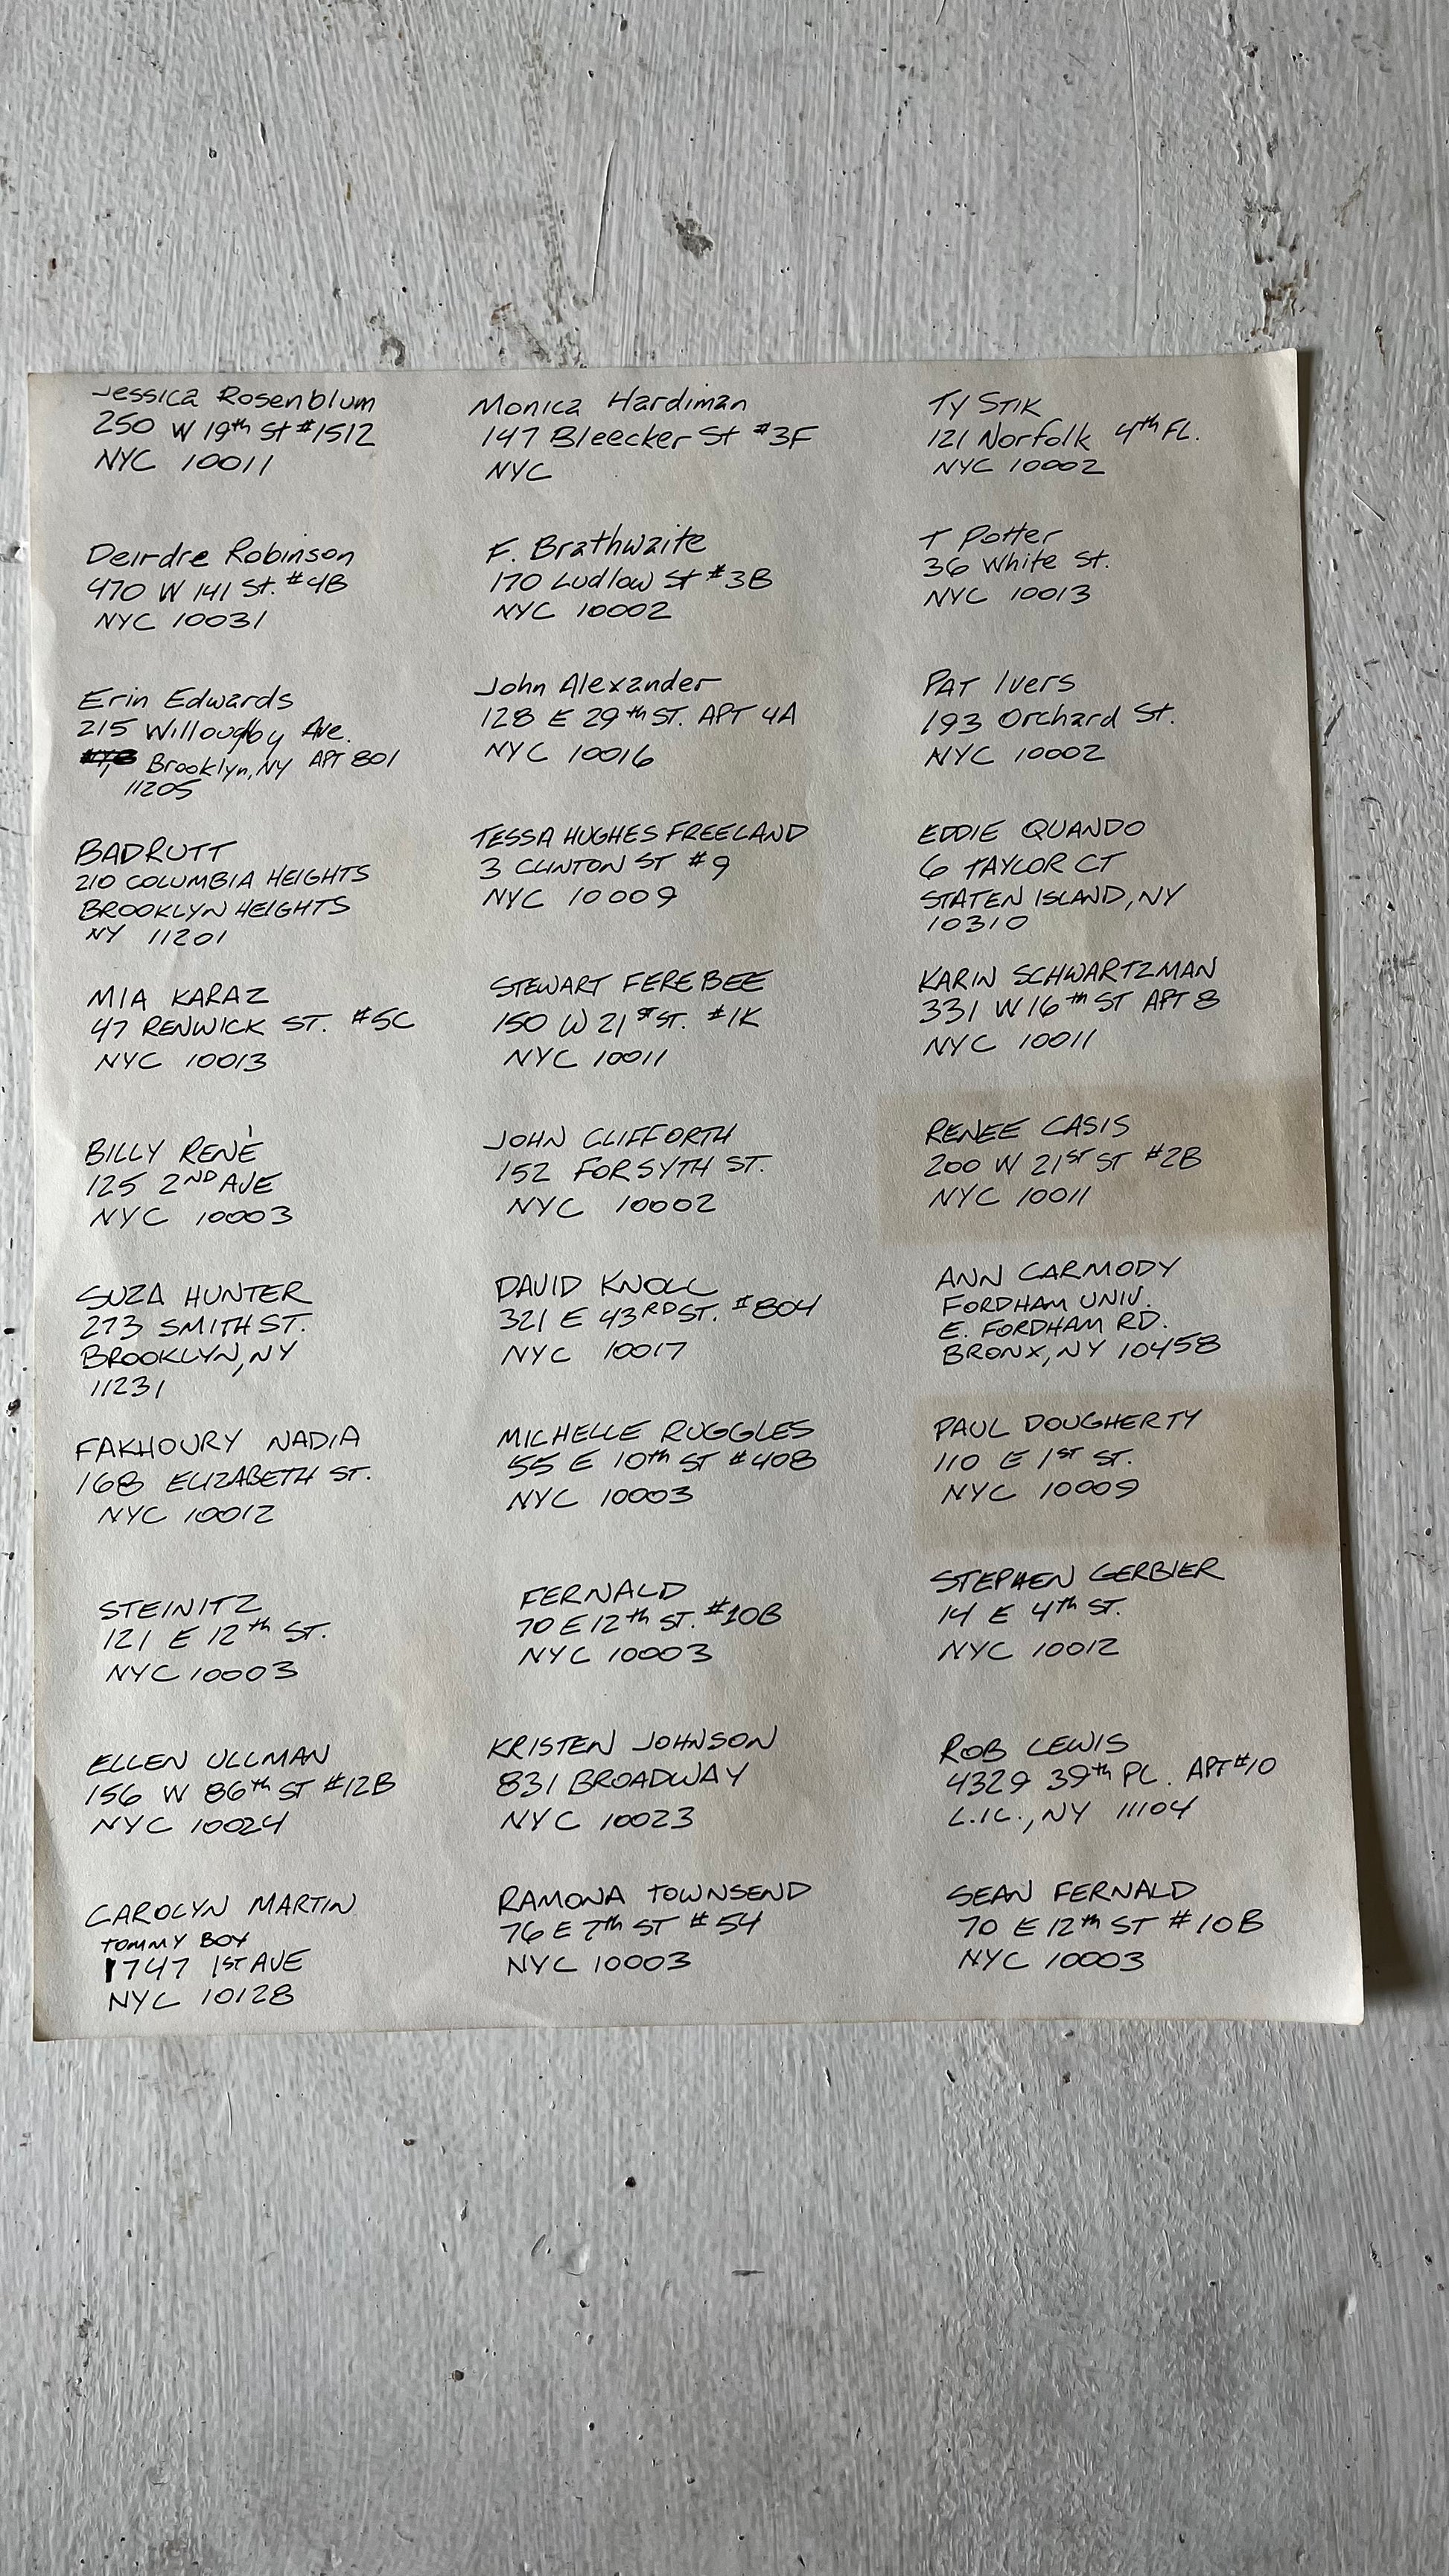 Jessica Rosenblum
250 W 19th St #1512
NYC 10011
Monica Hardiman
147 Bleecker St #3F
NYC
TY STIK
121 Norfolk 4th FL.
NYC 10002
Deirdre Robinson
470 W 141 St. #4B
NYC 10031
F. Brathwaite
170 Ludlow St #3B
NYC 10002
T Potter
36 White St.
NYC 10013
Erin Edwards
215 Willougby Ave.
Brooklyn, NY APT 801
11205
John Alexander
128 E 29th ST. APT 4A
NYC 10016
PAT Ivers
193 Orchard St.
NYC 10002
BADRUTT
210 COLUMBIA HEIGHTS
BROOKLYN HEIGHTS
NY 11201
TESSA HUGHES FREELAND
3 CLINTON ST #9
NYC 10009
EDDIE QUANDO
6 TAYLOR CT
STATEN ISLAND, NY
10310
MIA KARAZ
47 RENWICK ST. #5C
NYC 10013
STEWART FEREBEE
150 W 21ST ST. #1K
NYC 10011
KARIN SCHWARTZMAN
331 W 16th ST APT 8
NYC 10011
BILLY RENÉ
125 2ND AVE
NYC 10003
JOHN CLIFFORTH
152 FORSYTH ST.
NYC 10002
RENEE CASIS
200 W 21ST ST #2B
NYC 10011
SUZA HUNTER
273 SMITH ST.
BROOKLYN, NY
11231
DAVID KNOLL
321 E 43RD ST. #804
NYC 10017
ANN CARMODY
FORDHAM UNIV.
E. FORDHAM RD.
BRONX, NY 10458
FAKHOURY NADIA
168 ELIZABETH ST.
NYC 10012
MICHELLE RUGGLES
55 E 10th ST #408
NYC 10003
PAUL DOUGHERTY
110 E 1ST ST.
NYC 10009
STEINITZ
121 E 12th ST.
NYC 10003
FERNALD
70 E 12th ST. #10B
NYC 10003
STEPHEN GERBIER
14 E 4th ST.
NYC 10012
ELLEN ULLMAN
156 W 86th ST #12B
NYC 10024
KRISTEN JOHNSON
831 BROADWAY
NYC 10023
ROB LEWIS
4329 39th PL. APT #10
L.I.C., NY 11104
CAROLYN MARTIN
TOMMY BOY
1747 1ST AVE
NYC 10128
RAMONA TOWNSEND
76 E 7th ST #54
NYC 10003
SEAN FERNALD
70 E 12th ST #10B
NYC 10003